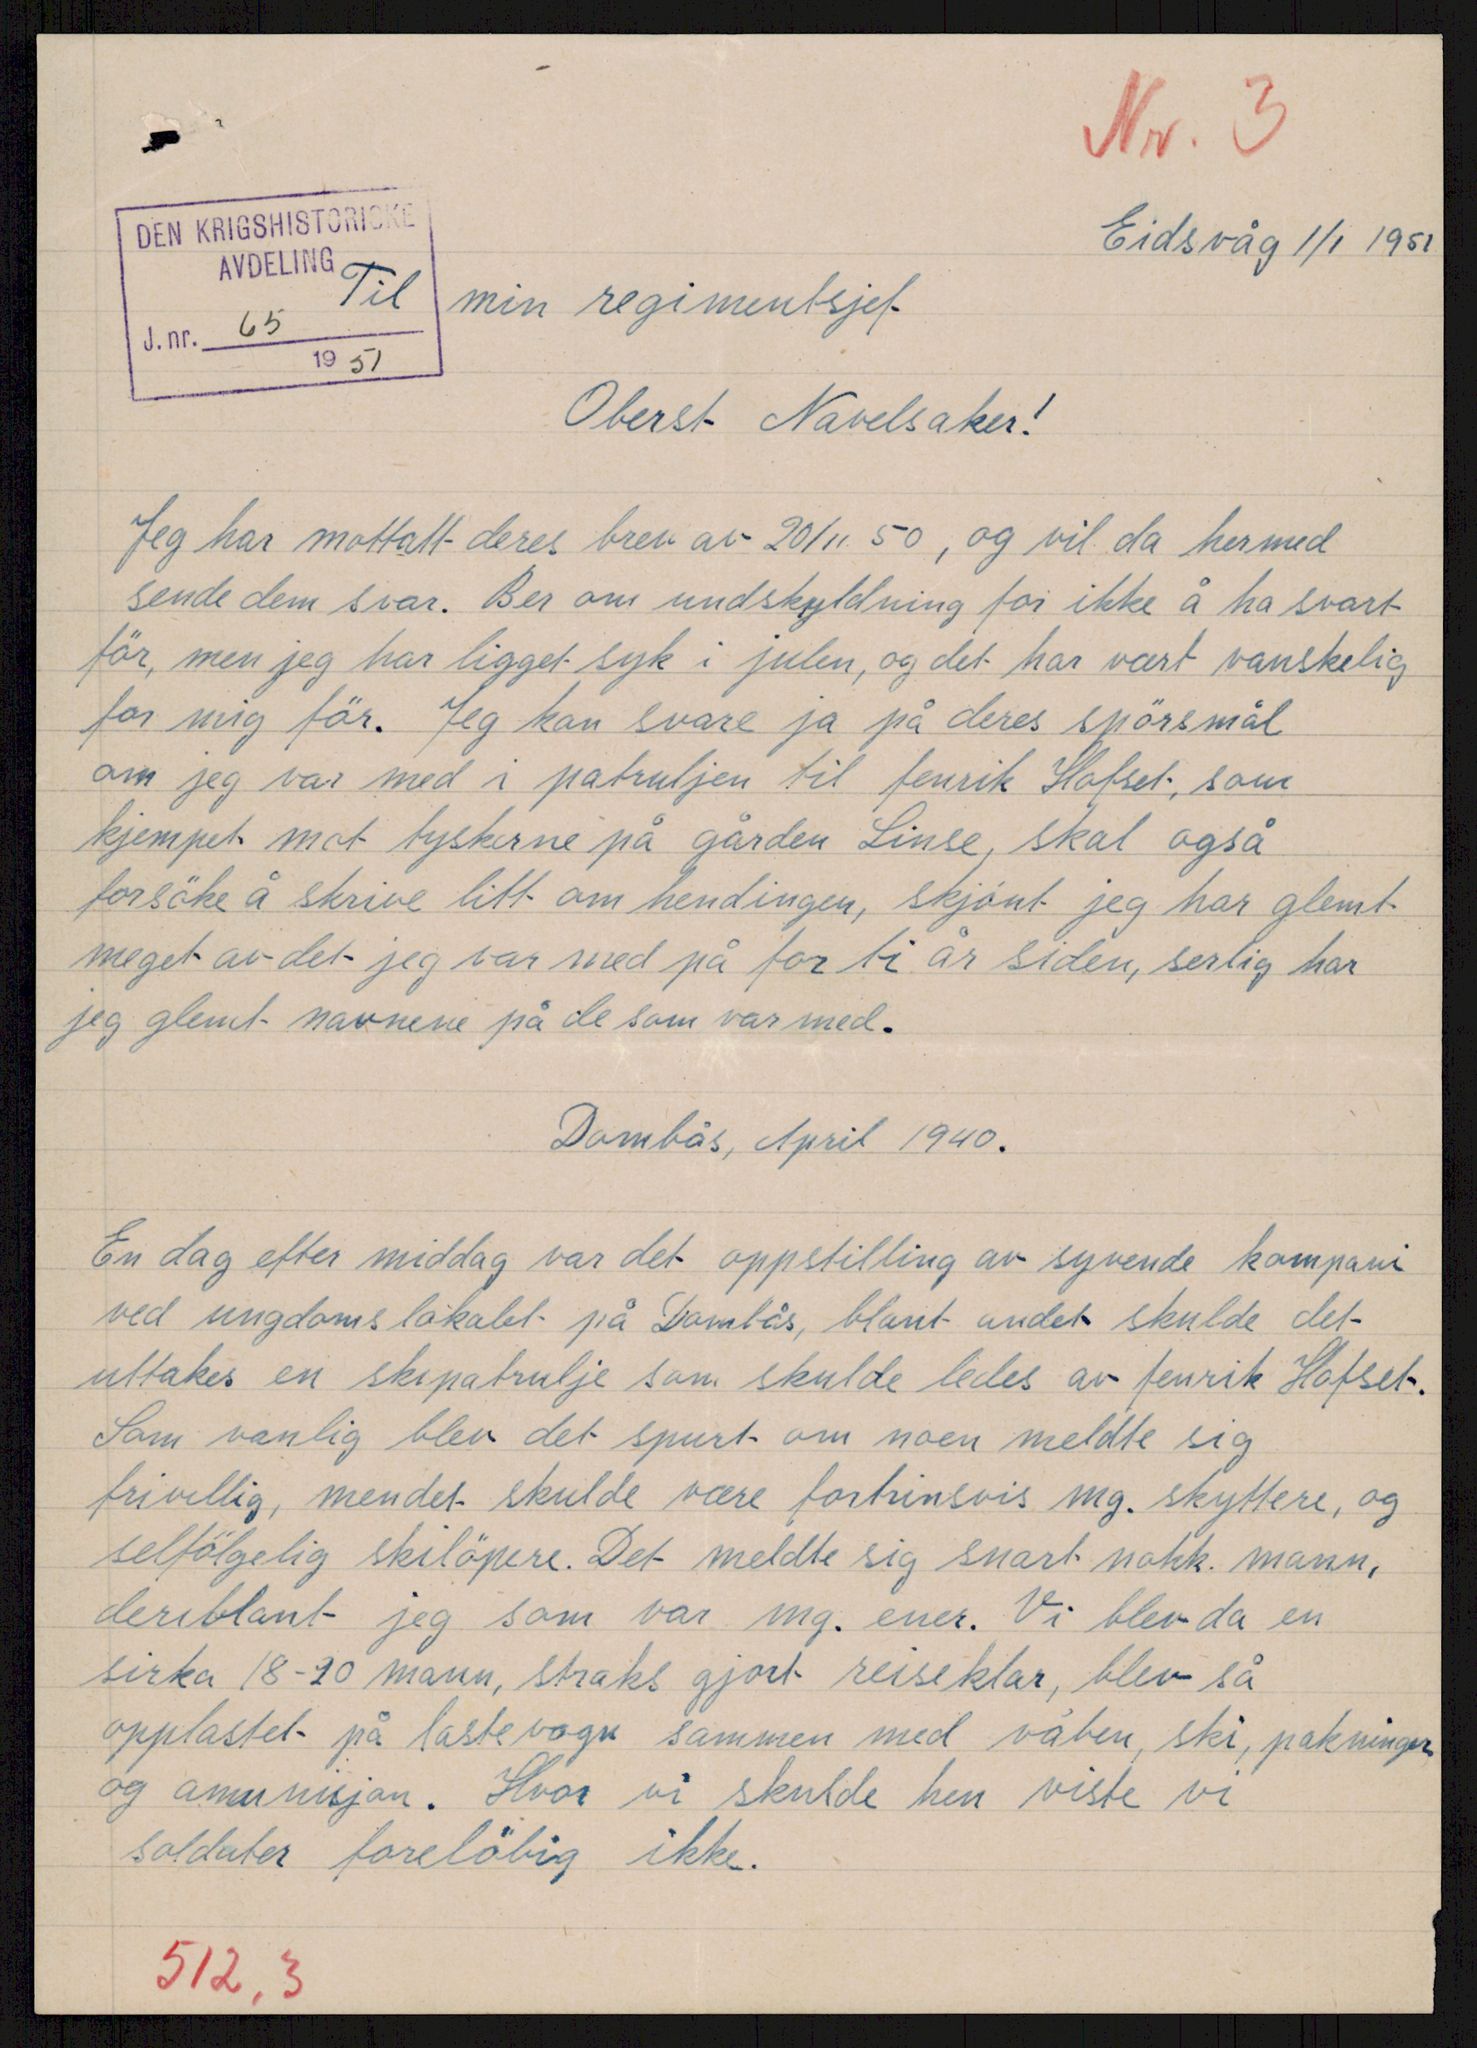 Nr. 3
DEN KRIGSHISTORISKE
AVDELING
J. nr. 65
19 51
Eidsvåg 1/1 1951
Til min regimentsjef
Oberst Navelsaker!
Jeg har mottatt deres brev av 20/11 50, og vil da hermed
sende dem svar. Ber om undskyldning for ikke å ha svart
för, men jeg har ligget syk i julen, og det har vært vanskelig
for mig för. Jeg kan svare ja på deres spörsmål
om jeg var med i patruljen til fenrik Hofset, som
kjempet mot tyskerne på gården Linse, skal også
forsöke å skrive litt om hendingen, skjönt jeg har glemt
meget av det jeg var med på for ti år siden, serlig har
jeg glemt navnene på de som var med.
Dombås, April 1940.
En dag efter middag var det oppstilling av syvende kompani
ved ungdomslokalet på Dombås, blant andet skulde det
uttakes en skipatrulje som skulde ledes av fenrik Hofset.
Som vanlig blev det spurt om noen meldte sig
frivillig, men det skulde være fortrinsvis mg. skyttere, og
selfölgelig skilöpere. Det meldte sig snart nokk mann,
deriblant jeg som var mg. ener. Vi blev da en
sirka 18-20 mann, straks gjort reiseklar, blev så
opplastet på lastevogn sammen med våben, ski, pakninger
og amunisjon. Hvor vi skulde hen viste vi
soldater forelöbig ikke.
512,3